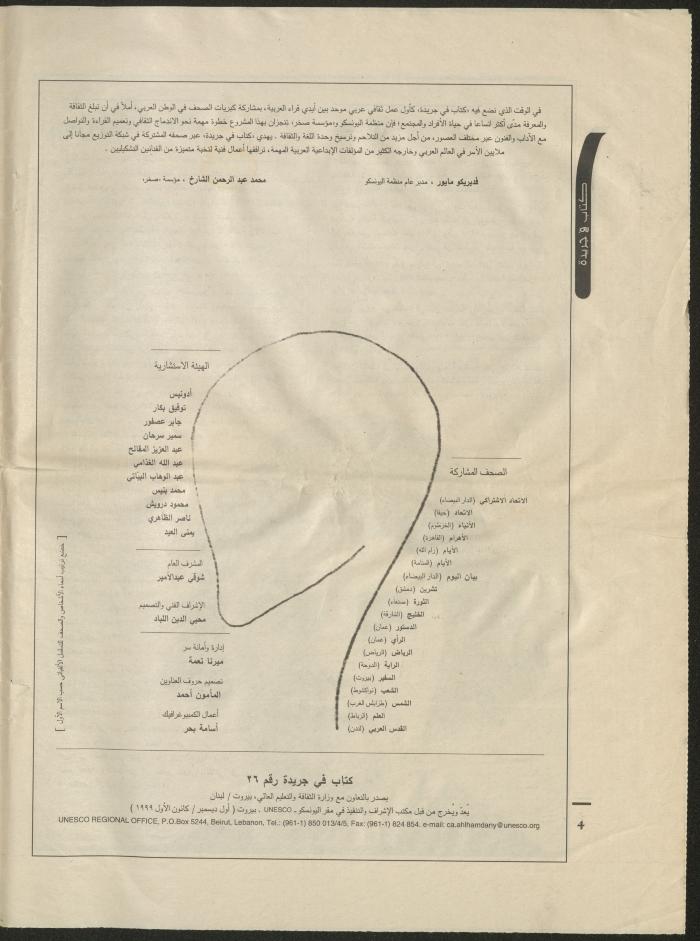 في الوقت الذي نضع فيه «كتاب في جريدة»، كأول عمل ثقافي عربي موحد بين أيدي قراء العربية، بمشاركة كبريات الصحف في الوطن العربي، أملاً في أن تبلغ الثقافة
والمعرفة مدًى أكثر اتساعاً في حياة الأفراد والمجتمع؛ فإن منظمة اليونسكو و«مؤسسة صخر»، تنجزان بهذا المشروع خطوة مهمة نحو الاندماج الثقافي وتعميم القراءة والتواصل
مع الآداب والفنون عبر مختلف العصور، من أجل مزيد من التلاحم وترسيخ وحدة اللغة والثقافة . يهدي «كتاب في جريدة»، عبر صحفه المشتركة في شبكة التوزيع مجاناً إلى
ملايين الأسر في العالم العربي وخارجه الكثير من المؤلفات الإبداعية العربية المهمة، ترافقها أعمال فنية لنخبة متميزة من الفنانين التشكيليين .
فديريكو مايور ، مدير عام منظمة اليونسكو
محمد عبد الرحمن الشارخ ، مؤسسة «صخر»
كتاب في جريدة
الهيئة الاستشارية
أدونيس
توفيق بكار
جابر عصفور
سمير سرحان
عبد العزيز المقالح
عبد الله الغذامي
عبد الوهاب البيّاتي
محمد بنيس
محمود درويش
ناصر الظاهري
يمنى العيد
المشرف العام
شوقي عبدالأمير
الإشراف الفني والتصميم
محيي الدين اللباد
إدارة وأمانة سر
ميرنا نعمة
تصميم حروف العناوين
المأمون أحمد
أعمال الكمبيوغرافيك
أسامة بحر
الصحف المشاركة
الاتحاد الاشتراكي (الدار البيضاء)
الاتحاد (حيفا)
الأنباء (الخرطوم)
الأهرام (القاهرة)
الأيام (رام الله)
الأيام (المنامة)
بيان اليوم (الدار البيضاء)
تشرين (دمشق)
الثورة (صنعاء)
الخليج (الشارقة)
الدستور (عمان)
الرأي (عمان)
الرياض (الرياض)
الراية (الدوحة)
السفير (بيروت)
الشعب (نواكشوط)
الشمس (طرابلس الغرب)
العلم (الرباط)
القدس العربي (لندن)
[ خضع ترتيب أسماء الأشخاص والصحف للتسلسل الألفبائي حسب الاسم الأول ]
كتاب في جريدة رقم ٢٦
يصدر بالتعاون مع وزارة الثقافة والتعليم العالي، بيروت / لبنان
يُعدّ ويُخرج من قبل مكتب الإشراف والتنفيذ في مقر اليونسكو ـ UNESCO . بيروت ( أول ديسمبر / كانون الأول ١٩٩٩ )
UNESCO REGIONAL OFFICE, P.O.Box 5244, Beirut, Lebanon, Tel.: (961-1) 850 013/4/5, Fax: (961-1) 824 854. e-mail: ca.ahlhamdany@unesco.org
4